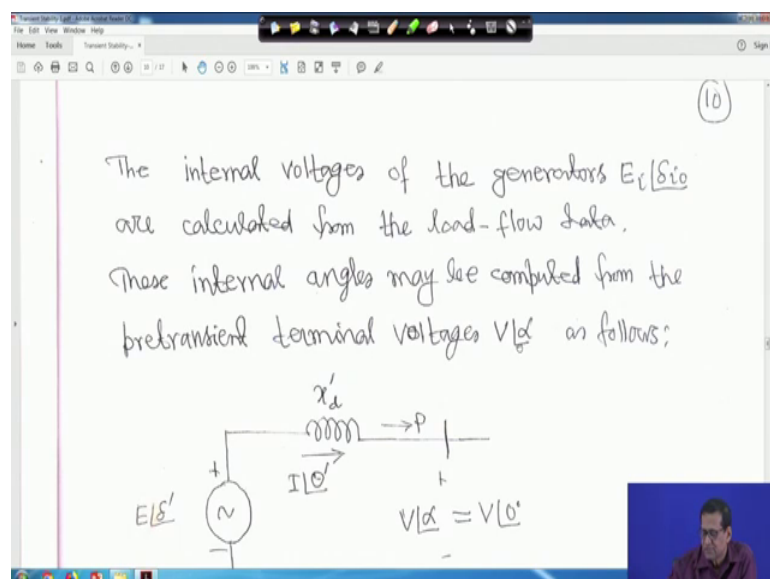 Transient Stability-1.pdf - Adobe Acrobat Reader DC
File Edit View Window Help
Home Tools Transient Stability-... ×
Sign
10 / 17
10
The internal voltages of the generators Ei∠δio
are calculated from the load-flow data.
These internal angles may be computed from the
pretransient terminal voltages V∠α as follows:
x'd
→P
+
I∠θ'
+
E∠δ'
V∠α = V∠0°
-
-